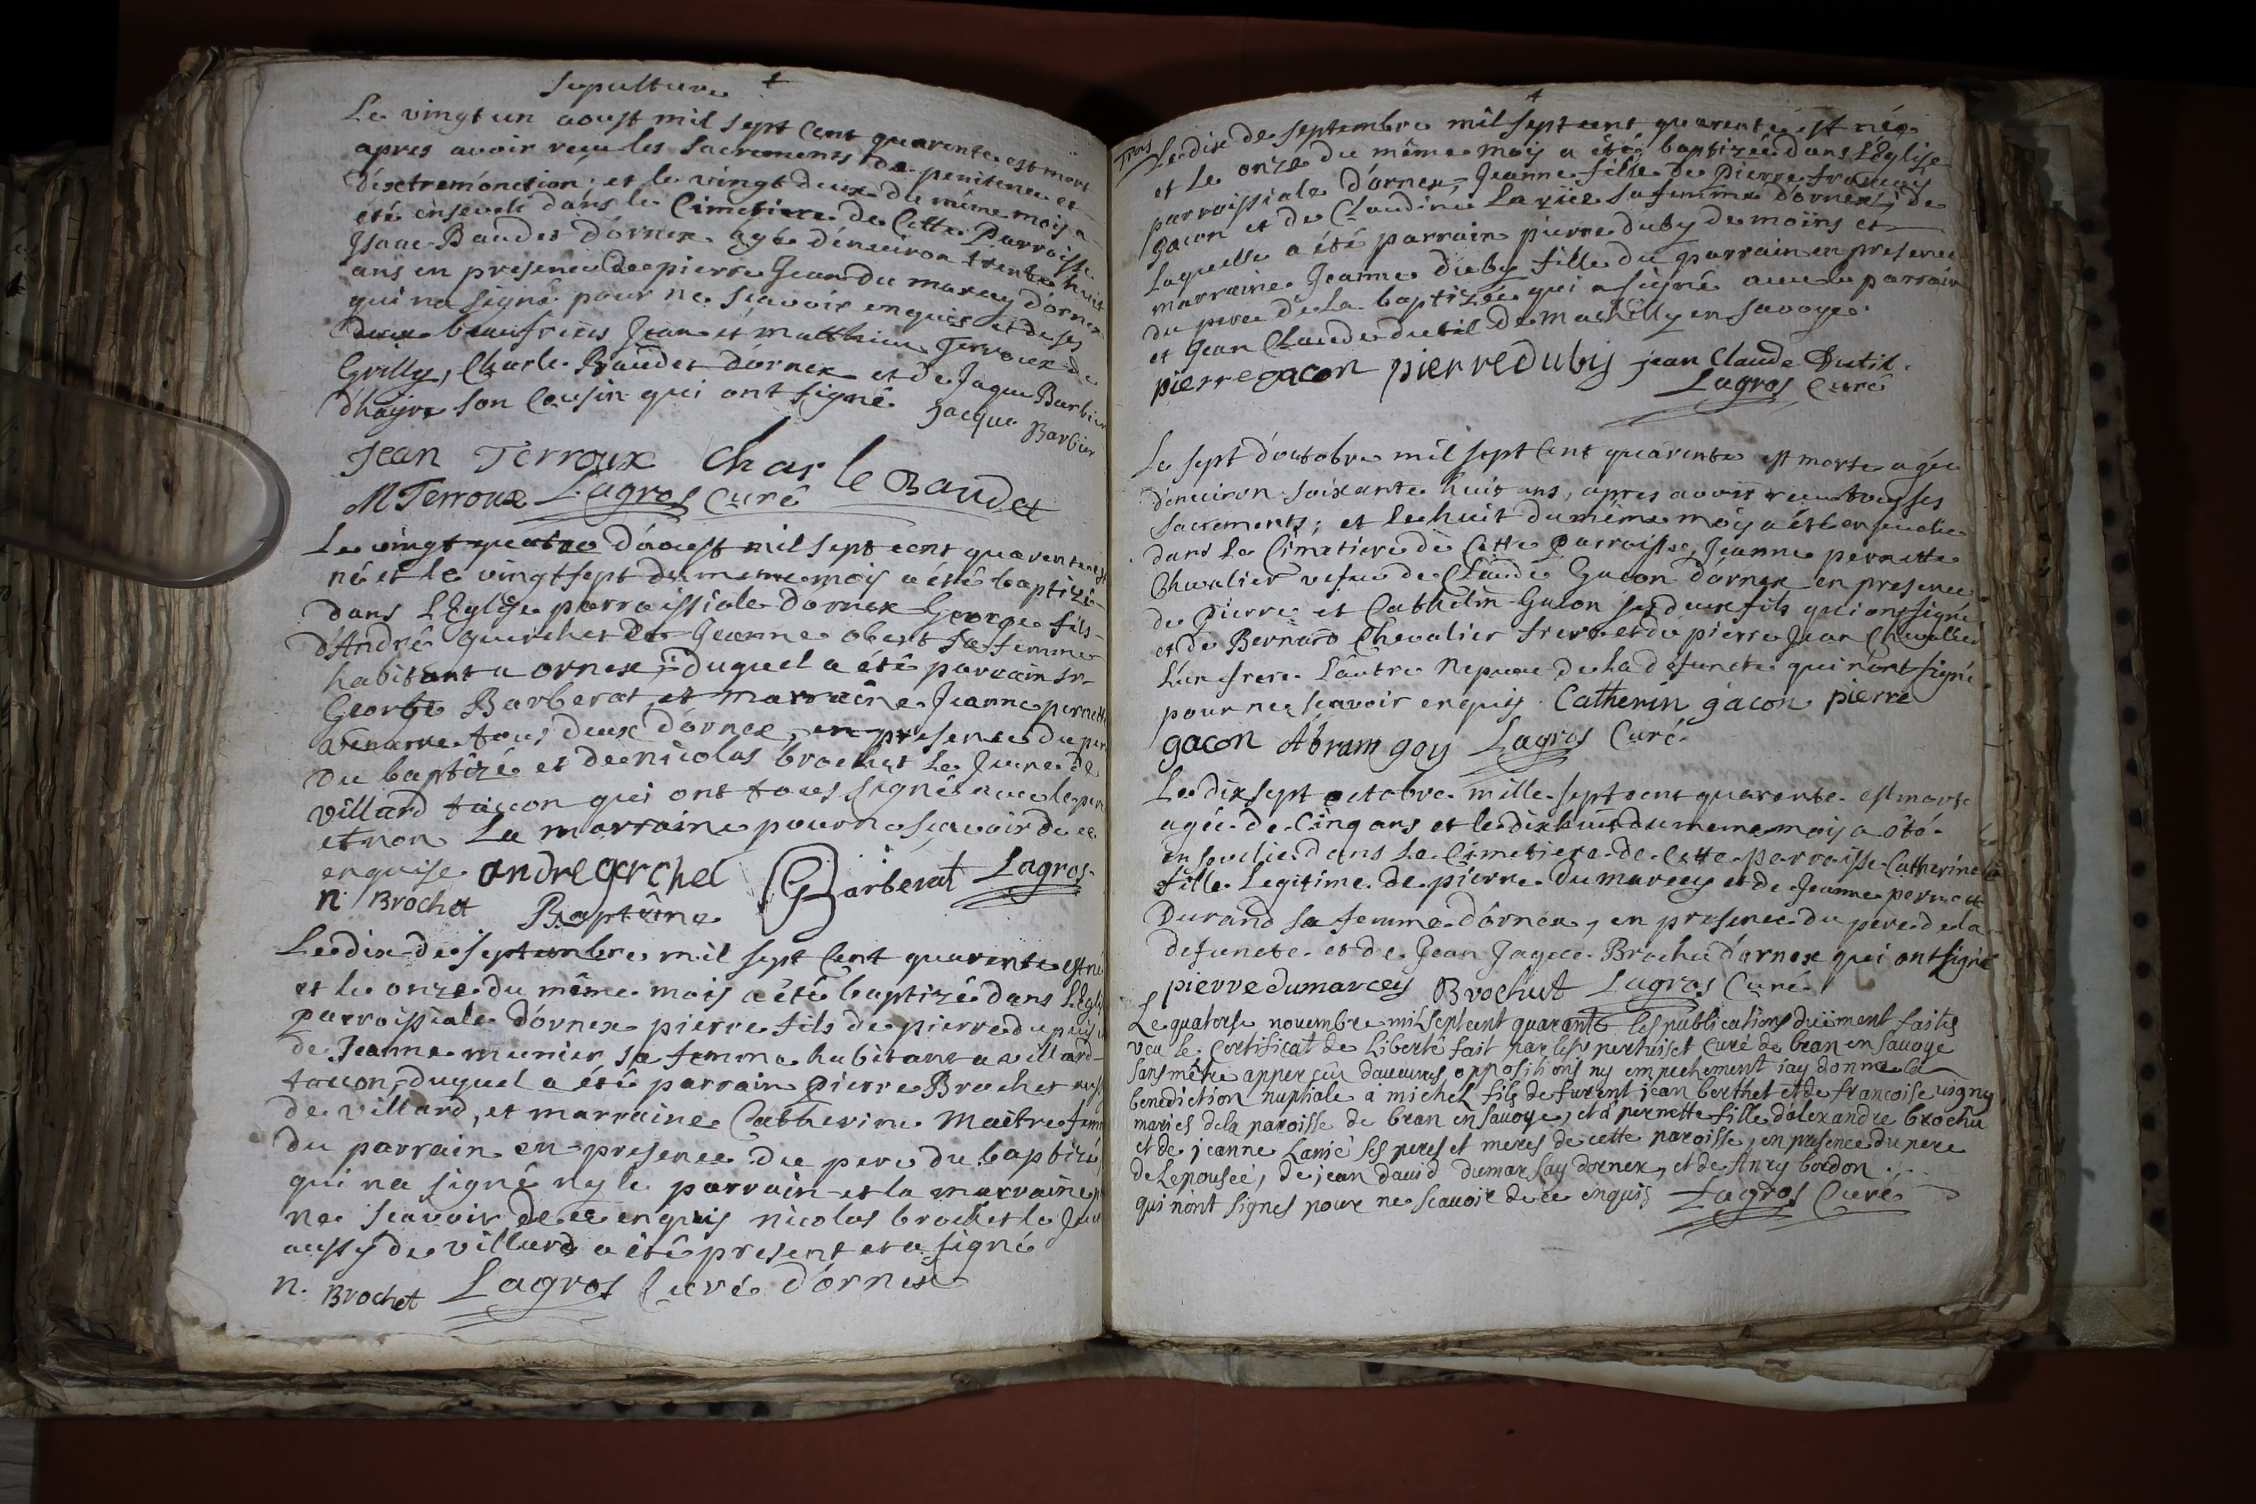 Sepulture
Le vingt un aoust mil sept Cent quarente est mort
apres avoir reçu les Sacrements de penitence et
d'extremonction; et le vingt deux du même mois a
eté ensevéli dans le Cimetiere de Cette Parroisse
Isaac Baudet d'ornex agé d'environ trente huit
ans en presence de pierre Jean du marcey d'ornex
qui na signé pour ne scavoir enquis et de ses
deux beaufreres Jean et matthieu Terroux de
Grilly, Charle Baudet d'ornex et de Jaque Barbier
son Cousin qui ont signé. Jacque
Barbier
Jean Terroux Charle Baudet
M Terroux Lagros Curé
Le vingt quatre d'aoust mil sept cent quarente est
né et le vingt sept du meme mois a été baptizé
dans L'Eglise parroissiale d'ornex George fils
d'André et de Jeanne sa femme
habitant a ornex, duquel a été parrain sr
George Barberat et marraine Jeanne pernette
tous deux d'ornex, en presence du pere
du baptizé et de nicolas brochet Le Jeune de
villard taccon qui ont tous signé avec le pere
et non La marraine pour ne scavoir de ce
enquise andre garchel GBarberat Lagros
n Brochet Baptême
Le dix de septembre mil sept Cent quarente est né
et le onze du même mois a été baptizé dans L'Eglise
parroissiale d'ornex pierre fils de pierre
de Jeanne munier sa femme habitant a villard
taccon, duquel a été parrain Pierre Brochet aussy
de villard, et marraine Catherine Maître femme
du parrain en presence du pere du baptizé
qui na signé ny le parrain et la marraine
ne scavoir de ce enquis nicolas brochet le Jeune
aussy de villard a été present et a signé
n. Brochet Lagros Curé d'ornex
Trois
Le dix de septembre mil sept cent quarente est née
et le onze du même mois a été baptizée dans L'Eglise
parroissiale d'ornex, Jeanne fille de Pierre françois
gacon et de Claudine Lariie sa femme d'ornex; de
Laquelle a été parrain pierre duby de moins et
marraine Jeanne duby fille du parrain en presence
du pere de la baptizée qui a signé avec le parrain
et Jean Claude dutil de machilly en savoye.
pierre gacon pierre Duby jean Claude Dutil.
Lagros Curé
Le sept d'octobre mil sept Cent quarente est morte agée
d'environ soixante huit ans, apres avoir reçu tous ses
sacrements; et le huit du même mois a été ensevelie
dans Le Cimetiere de Cette Parroisse, Jeanne pernette
Chevalier vefve de Claude Gacon d'ornex en presence
de Pierre et Cathelin Gacon ses deux fils qui ont signé
et de Bernard Chevalier frere et de pierre Jean Chevalier
L'un frere L'autre Nepveu de La defuncte qui n'ont signé
pour ne scavoir enquis. Catherin gacon pierre
gacon Abram goy Lagros Curé.
Le dix sept octobre mille sept cent quarente est morte
agée de Cinq ans et le dix huit du meme mois a été
ensevelie dans Le Cimetiere de Cette parroisse Catherine
fille Legitime de pierre Dumarcey et de Jeanne pernette
Durand sa femme d'ornex, en presence du pere de la
defuncte et de Jean Jaque Brochu d'ornex qui ont signé
pierre dumarcey Brochut Lagros Curé
Le quatorse novembre mil sept cent quarante les publications düment faites
veu le Certificat de Liberté fait par le sr pertuiset Curé de bran en savoye
sans mêtre apperçeu d'aucunes oppositions ny empechement j'ay donné la
benediction nuptiale à michel fils de furent jean berthet et de francoise
mariés de la paroisse de bran en savoye, et a pernette fille d'alexandre brochu
et de jeanne Larié ses peres et meres de cette paroisse, en presence du pere
de Lepousée, de jean david dumarsay dornex, et de Anry bordon
qui n'ont signés pour ne scavoir de ce enquis Lagros Curé